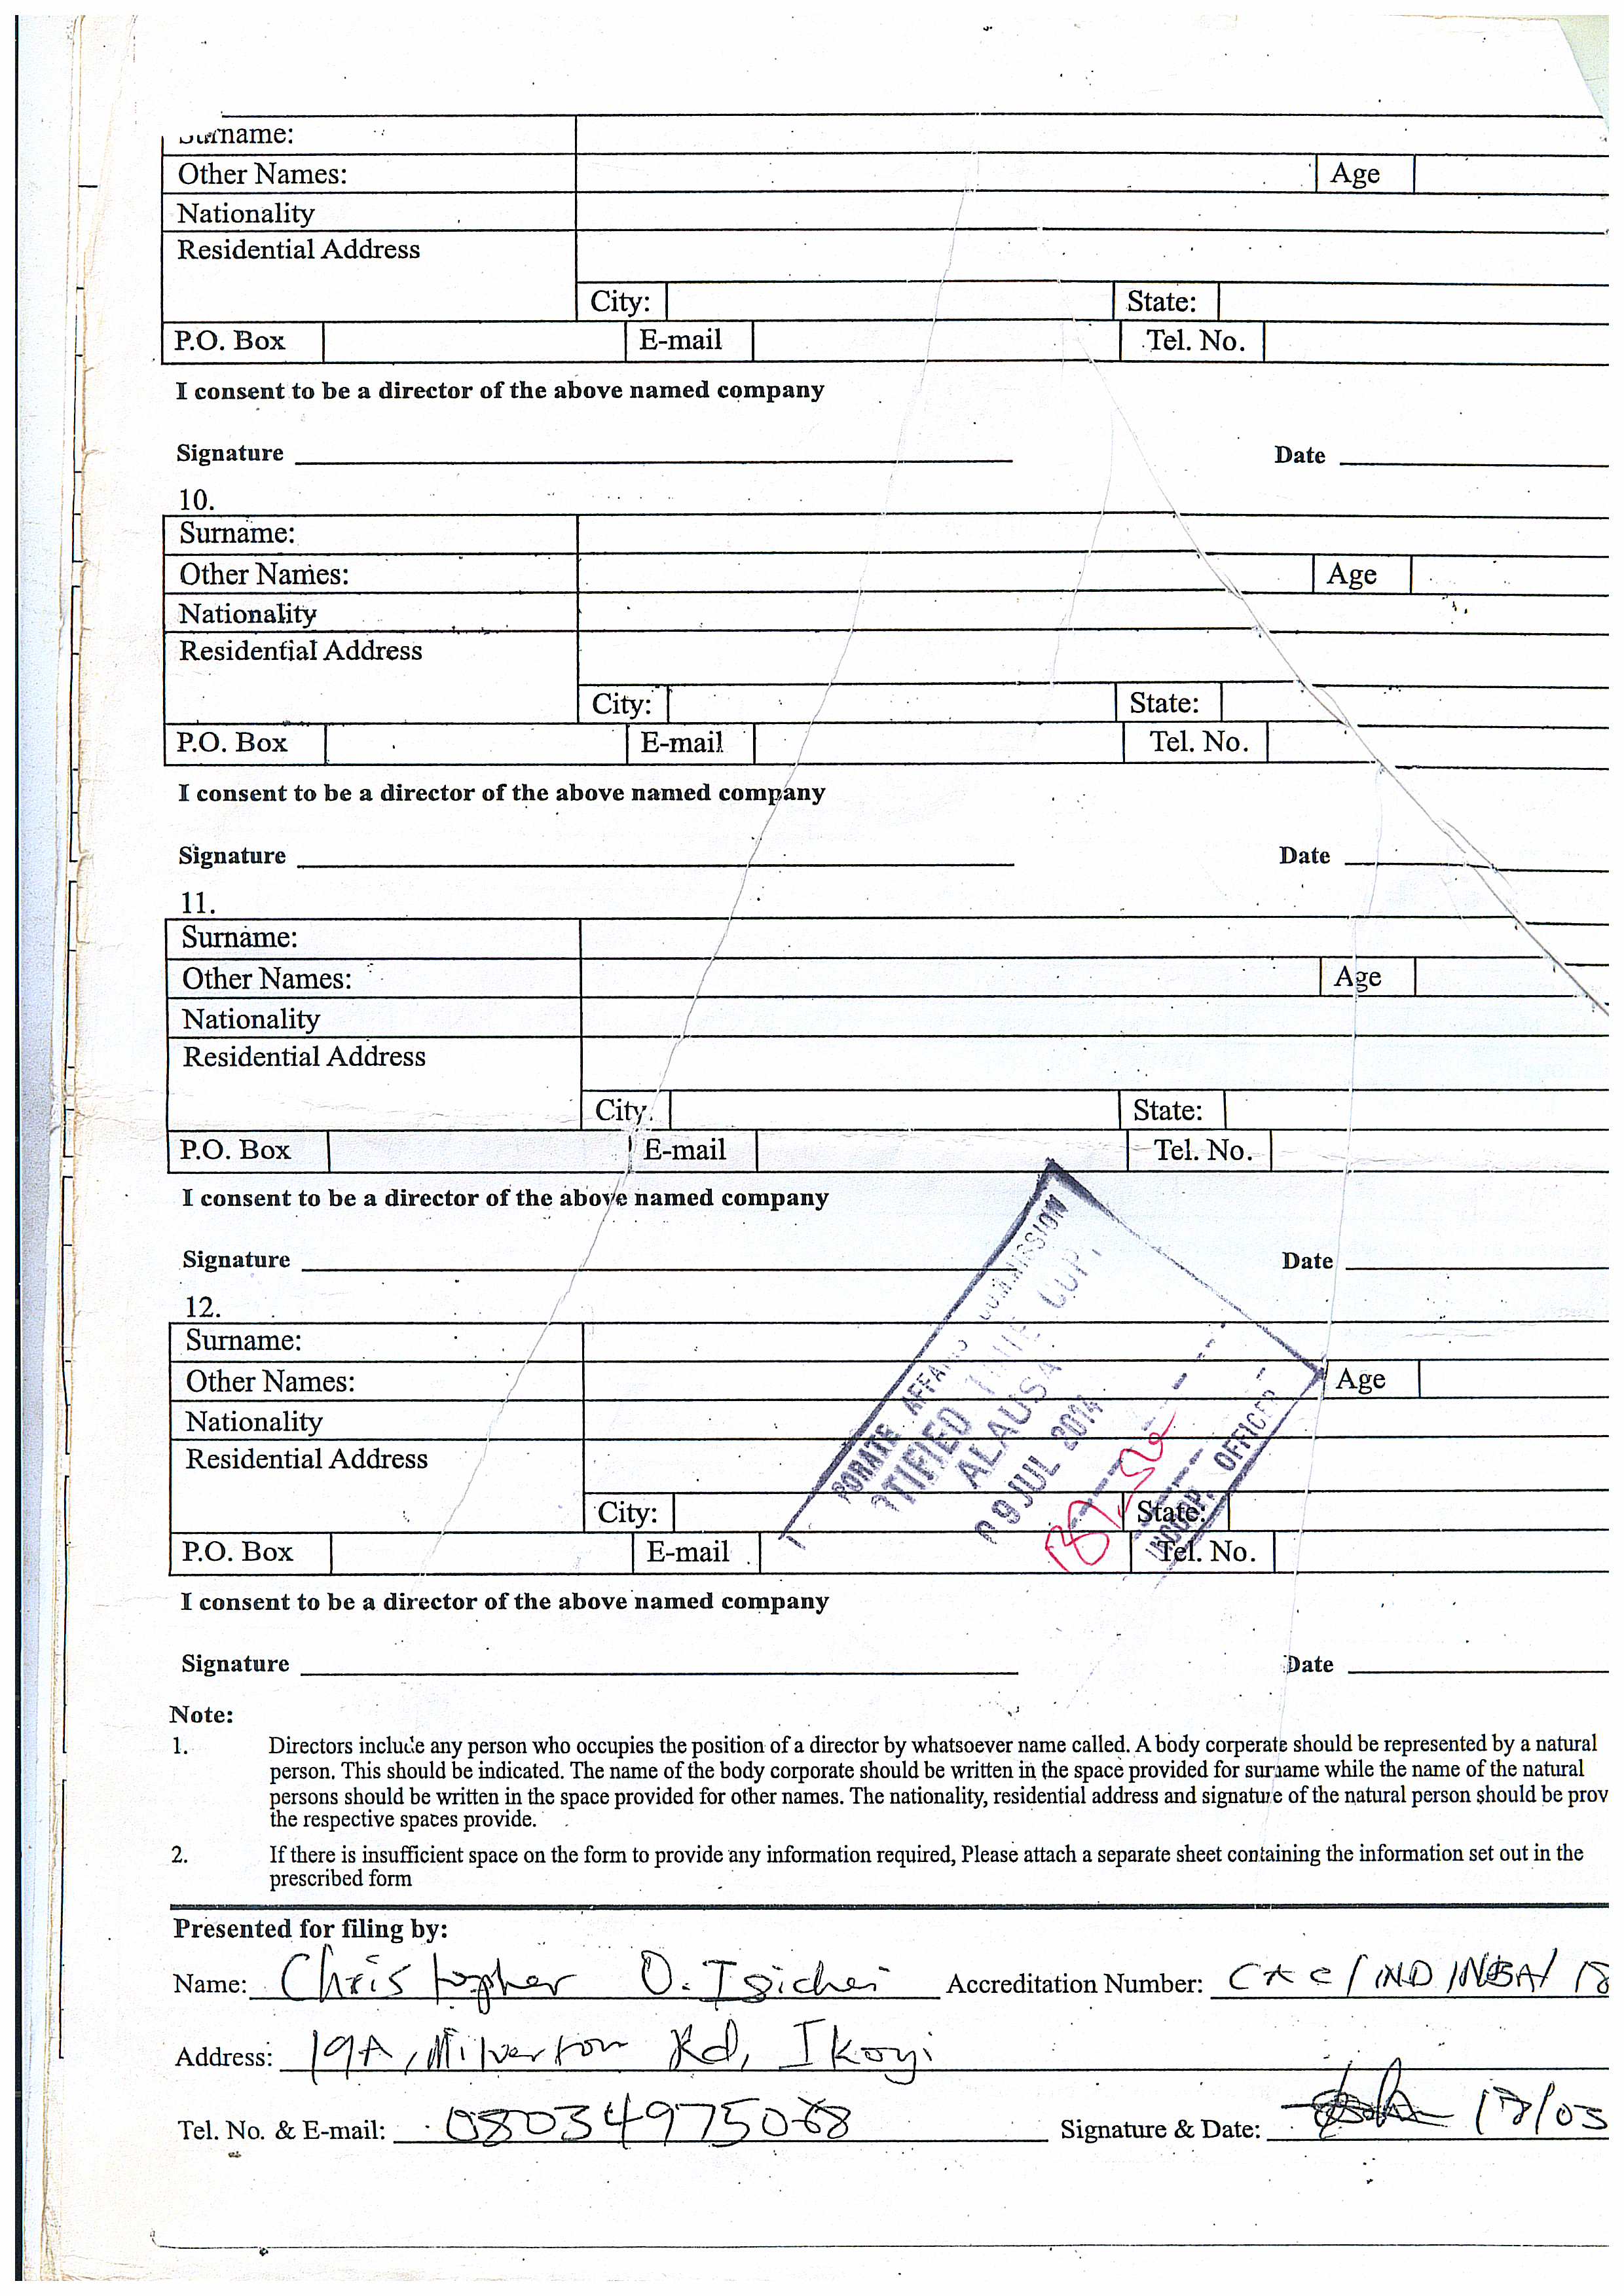 Surname:
Other Names: Age
Nationality
Residential Address
City: State:
P.O. Box E-mail Tel. No.
I consent to be a director of the above named company
Signature Date
10.
Surname:
Other Names: Age
Nationality
Residential Address
City: State:
P.O. Box E-mail Tel. No.
I consent to be a director of the above named company
Signature Date
11.
Surname:
Other Names: Age
Nationality
Residential Address
City: State:
P.O. Box E-mail Tel. No.
I consent to be a director of the above named company
Signature Date
12.
Surname:
Other Names: Age
Nationality
Residential Address
City: State:
P.O. Box E-mail Tel. No.
PORATE AFFAIRS COMMISSION
TIFIED TRUE COPY
ALAUSA
09 JUL 2014
INCORP. OFFICER
I consent to be a director of the above named company
Signature Date
Note:
1. Directors include any person who occupies the position of a director by whatsoever name called. A body corperate should be represented by a natural
person. This should be indicated. The name of the body corporate should be written in the space provided for surname while the name of the natural
persons should be written in the space provided for other names. The nationality, residential address and signature of the natural person should be prov
the respective spaces provide.
2. If there is insufficient space on the form to provide any information required, Please attach a separate sheet containing the information set out in the
prescribed form
Presented for filing by:
Name: Christopher O. Isichei Accreditation Number: CAC/IND/NBA/ 18
Address: 19A, Milverton Rd, Ikoyi
Tel. No. & E-mail: Signature & Date: 18/03